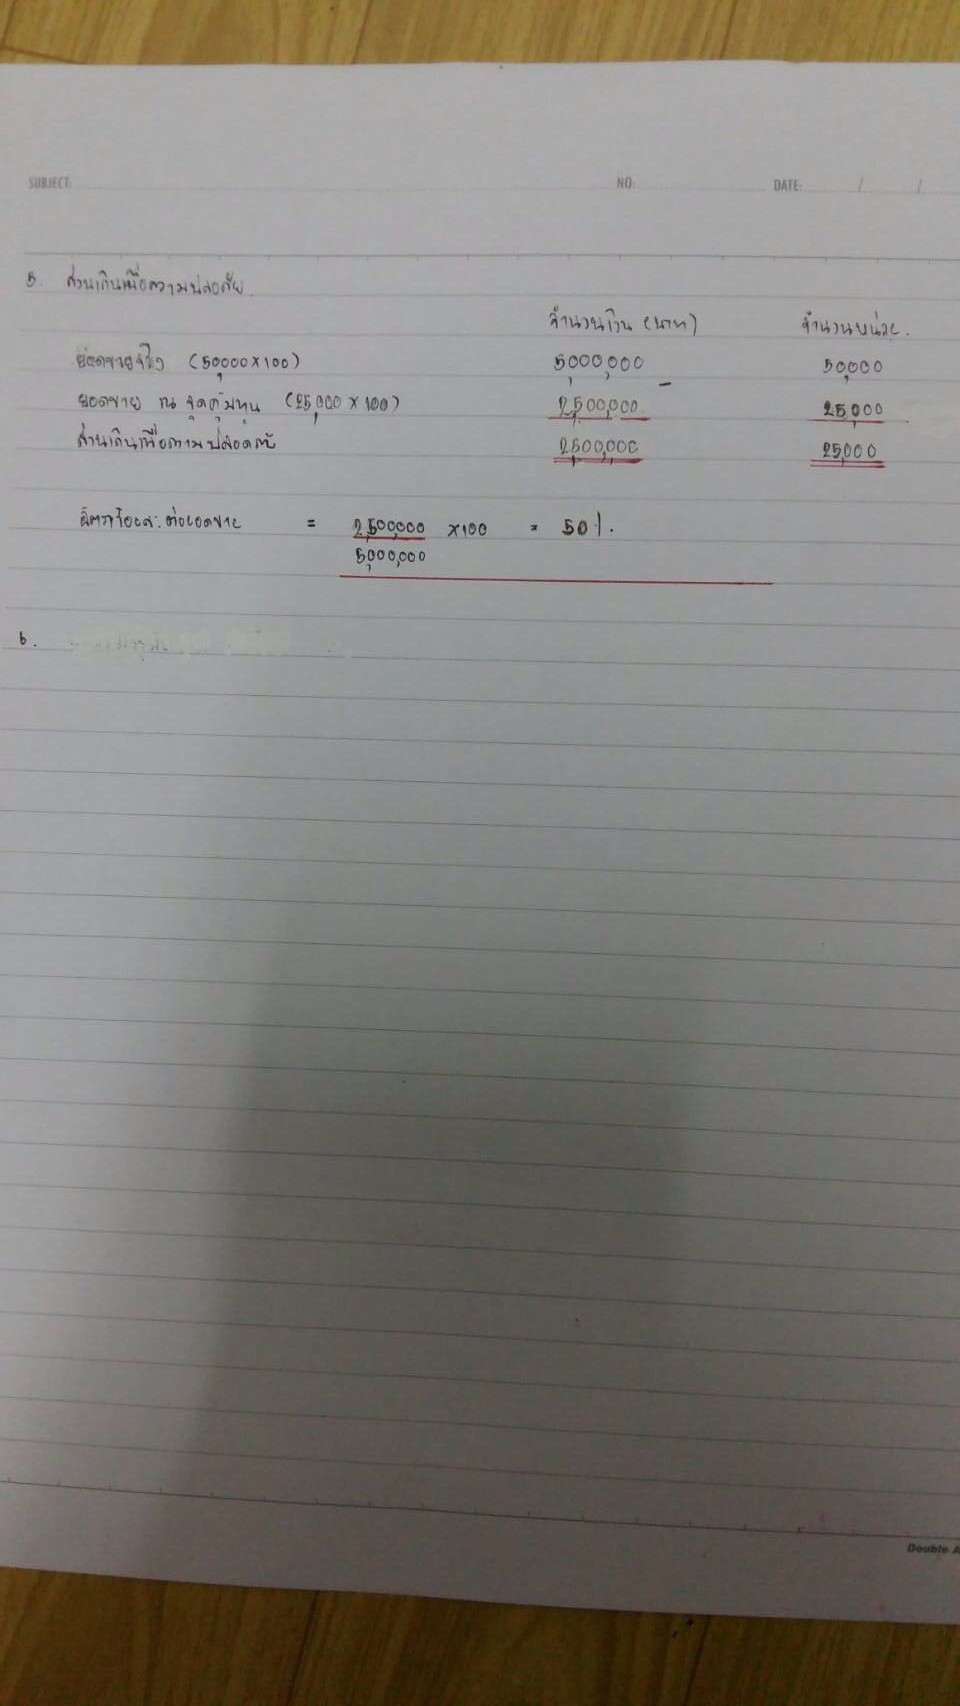 SUBJECT: NO: DATE: / /
5. ส่วนเกินเพื่อความปลอดภัย
จำนวนเงิน (บาท) จำนวนหน่วย.
ยอดขายจริง (50,000 x 100) 5,000,000 50,000
ยอดขาย ณ จุดคุ้มทุน (25,000 x 100) 2,500,000 25,000
ส่วนเกินเพื่อความปลอดภัย 2,500,000 25,000
อัตราร้อยละต่อยอดขาย = 2,500,000 x100 = 50%.
5,000,000
6.
Double A